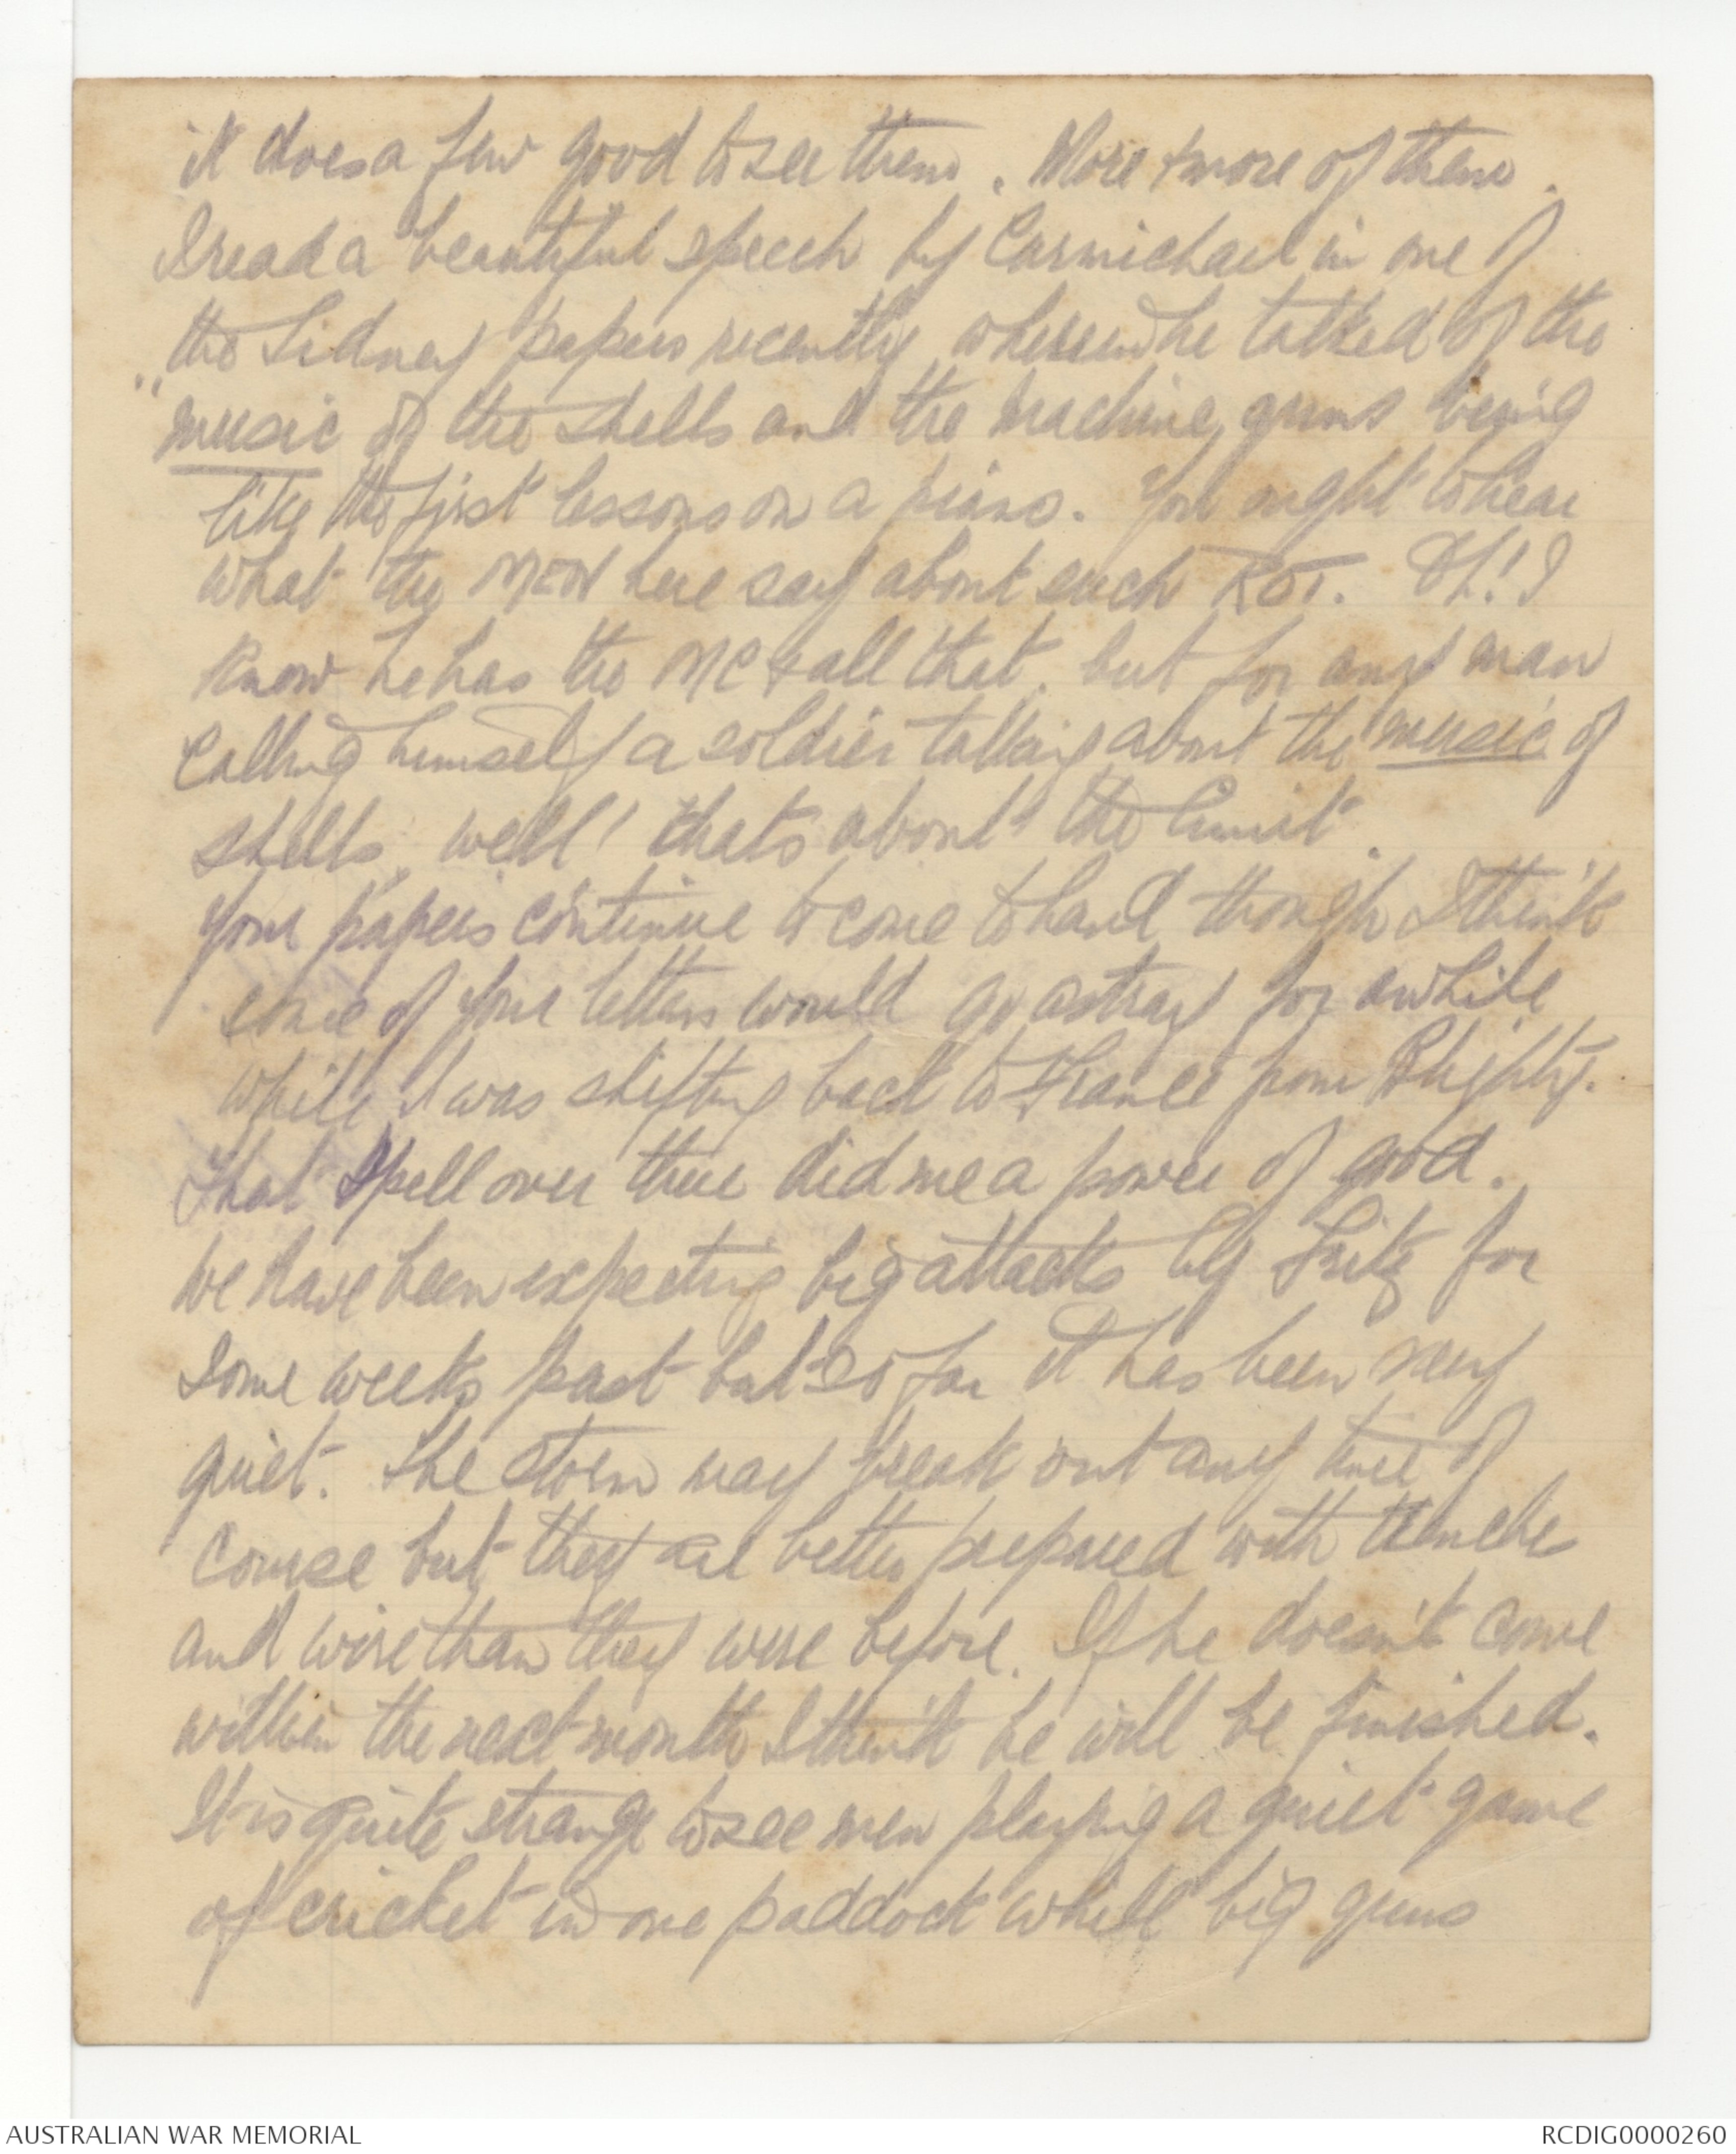 it does a few good to see them. More & more of them.
I read a beautiful speech by Carmichael in one of
the Sidney papers recently, wherein he talked of the
"music of the shells and the machine guns being
like the first lessons on a piano. You ought to hear
what the MEN here say about such ROT. Oh! I
know he has the MC & all that, but for any man
calling himself a soldier talking about the music of
shells, well! thats about the limit.
Your papers continue to come to hand though I think
some of your letters would go astray for awhile
while I was shifting back to France from Blighty.
That spell over there did me a power of good.
We have been expecting big attacks by Fritz for
some weeks past but so far it has been very
quiet. The storm may break out any time of
course but they are better prepared with trenches
and wire than they were before. If he doesn't come
within the next month I think he will be finished.
It is quite strange to see men playing a quiet game
of cricket in one paddock while big guns
AUSTRALIAN WAR MEMORIAL
RCDIG0000260